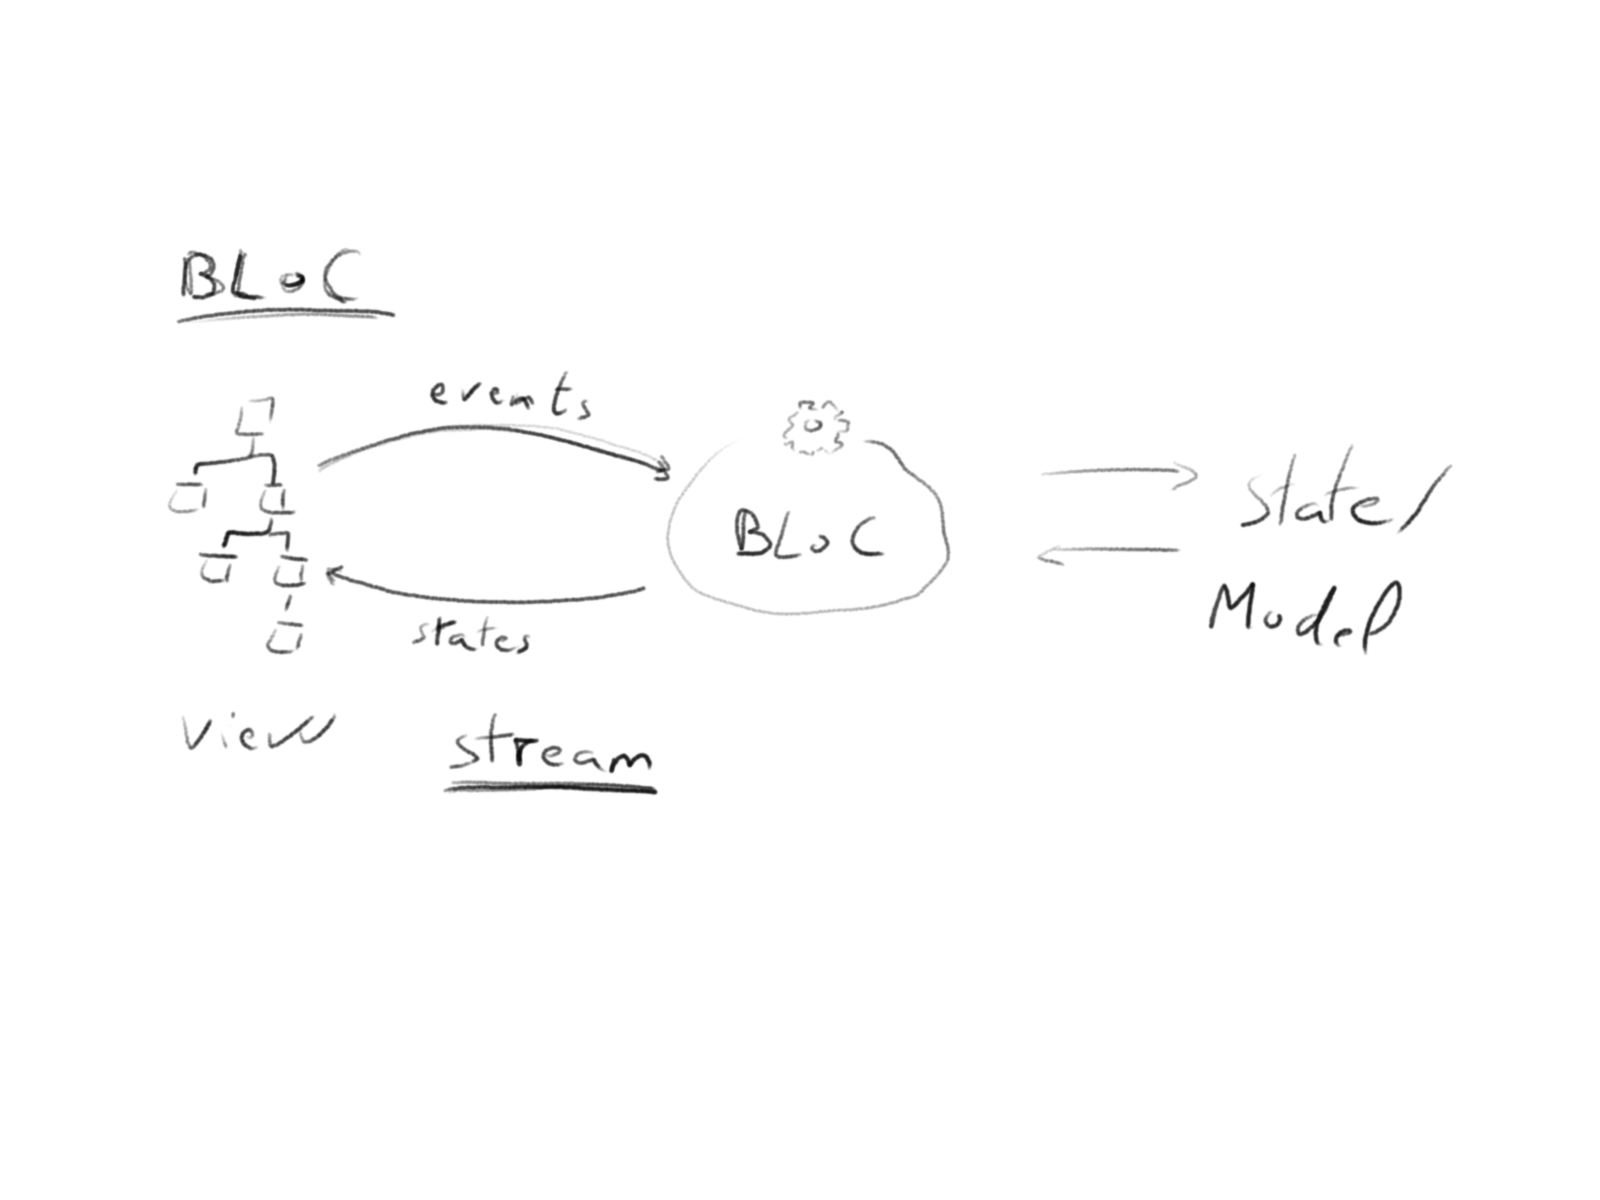 BLoC
events
BLoC
state/
Model
states
view
stream